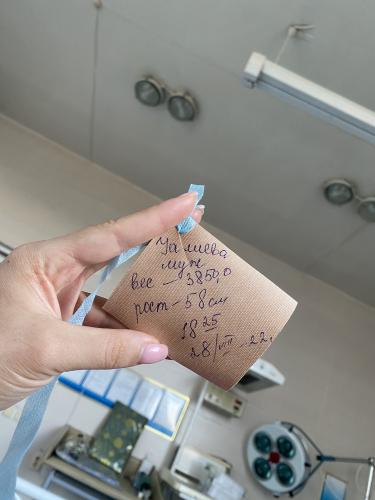 Галиева
муж
вес — 3850,0
рост - 58 см
18 25
28/VIII - 22.